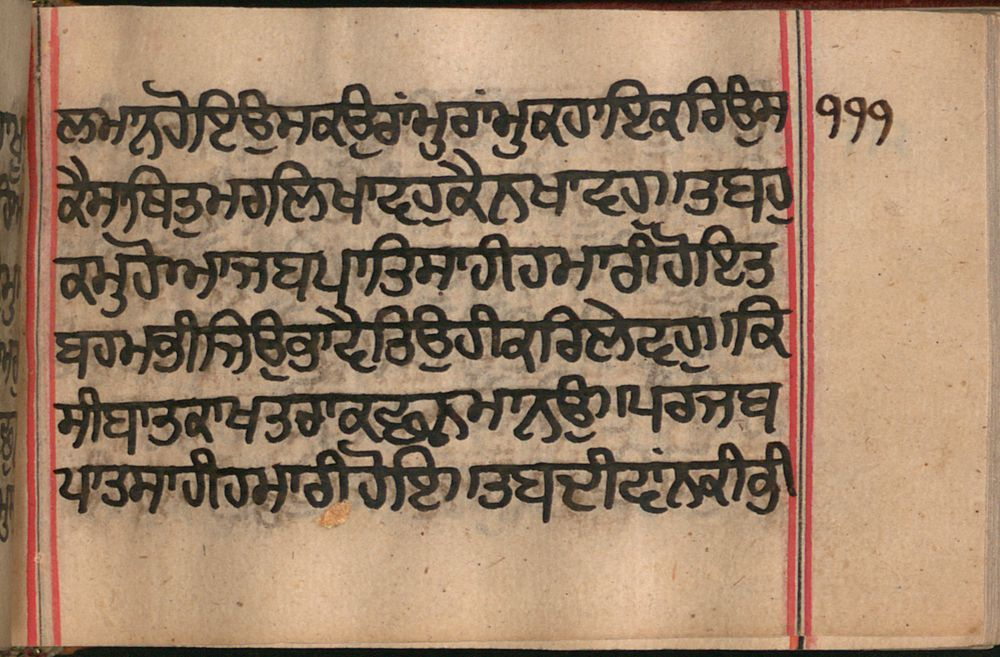 ਲਮਾਨਹੋਇਉਸਕਉਰਾਂਮੁਰਾਂਮੁਕਹਾਇਕਰਿਉਸ ੧੧੧
ਕੈਮਾਥਿਤੁਮਗਲਿਖਾਵਹੁਕੈਨਖਾਵਹੁ।।ਤਬਹੁ
ਕਮੁਹੋਆਜਬਪਾਤਿਸਾਹੀਹਮਾਰੀਹੋਇਤ
ਬਹਮਭੀਜਿਉਭਾਵੈਤਿਉਹੀਕਰਿਲੇਵਹੁ।।ਕਿ
ਸੀਬਾਤਕਾਖਤਰਾਕਛੁਨਮਾਨਉ।।ਪਰਜਬ
ਪਾਤਸਾਹੀਹਮਾਰੀਹੋਇ।।ਤਬਦੀਵਾਂਨਕੀਭੀ